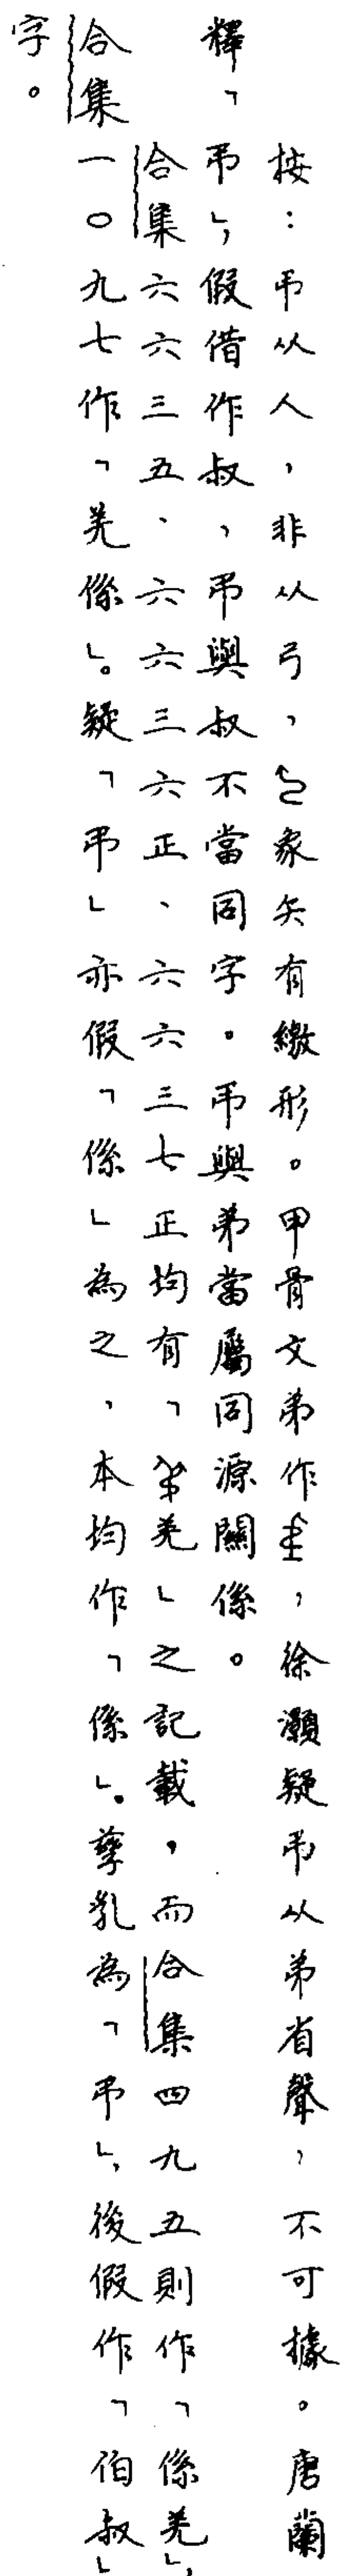 按：弔从人，非从弓，象矢有繳形。甲骨文弟作，徐灝疑弔从弟省聲，不可據。唐蘭
釋「弔」，假借作叔，弔與叔不當同字。弔與弟當屬同源關係。
合集六六三五、六六三六正、六六三七正均有「羌」之記載，而合集四九五則作「係羌」，
合集一〇九七作「羌係」。疑「弔」亦假「係」為之，本均作「係」。孳乳為「弔」，後假作「伯叔」
字。